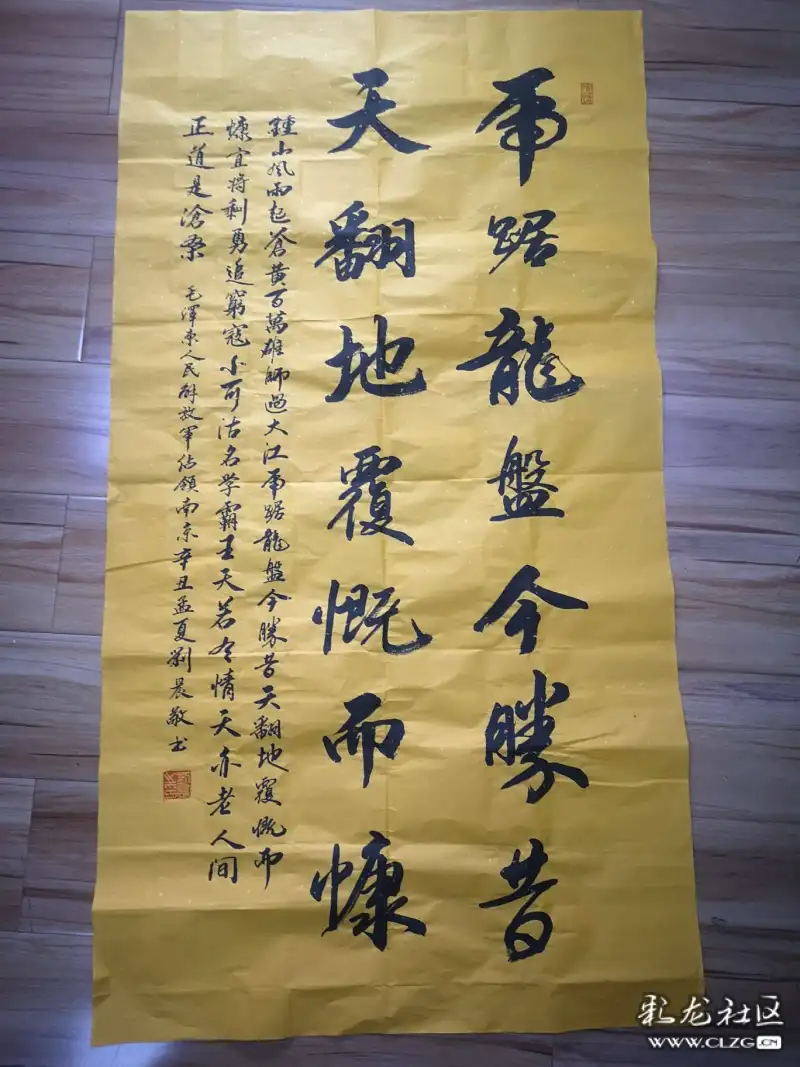 虎踞龍盤今勝昔
天翻地覆慨而慷
鍾山風雨起蒼黃百萬雄師過大江虎踞龍盤今勝昔天翻地覆慨而
慷宜將剩勇追窮寇不可沽名学霸王天若有情天亦老人间
正道是滄桑 毛澤東人民解放軍佔領南京辛丑孟夏劉晨敬书
彩龙社区
WWW.CLZG.CN